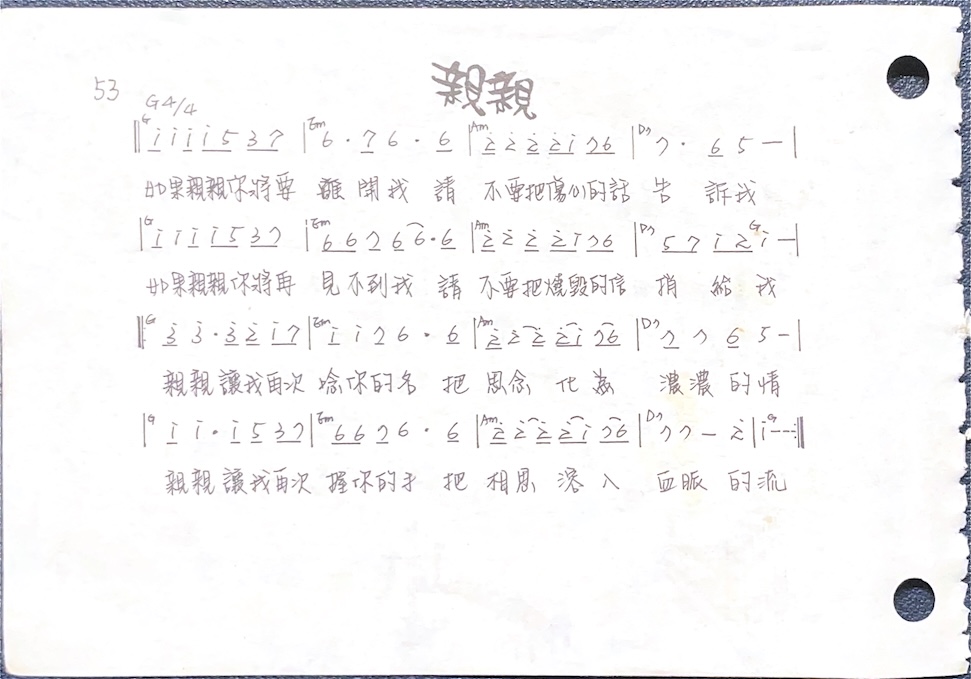 53
親親
G 4/4
G i i i i 5 3 7 | Em 6 · 7 6 · 6 | Am 2 2 2 2 i 7 6 | D7 7 · 6 5 — |
如果親親你將要 離開我 請 不要把傷心的話 告 訴我
G i i i i 5 3 7 | Em 6 6 7 6 6 · 6 | Am 2 2 2 2 i 7 6 | D7 5 7 i 2 G i — |
如果親親你將再 見不到我 請 不要把燒毀的信 捎 給 我
G 3 3 · 3 2 i 7 | Em i i 7 6 · 6 | Am 2 2 2 2 i 7 6 | D7 7 7 6 5 — |
親親讓我再次 唸你的名 把 思念 化為 濃濃 的情
G i i · i 5 3 7 | Em 6 6 7 6 · 6 | Am 2 2 2 2 i 7 6 | D7 7 7 — 2 | G i ---
親親讓我再次 握你的手 把 相思 溶 入 血脈 的流